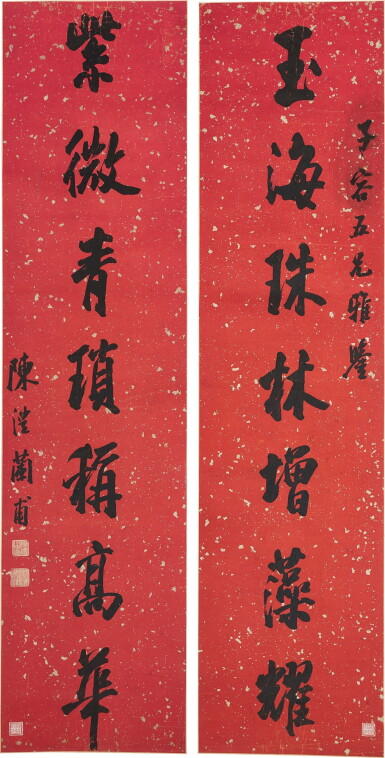 玉海珠林增藻耀
子容五兄雅鑒
紫微青瑣稱高華
陳澧蘭甫